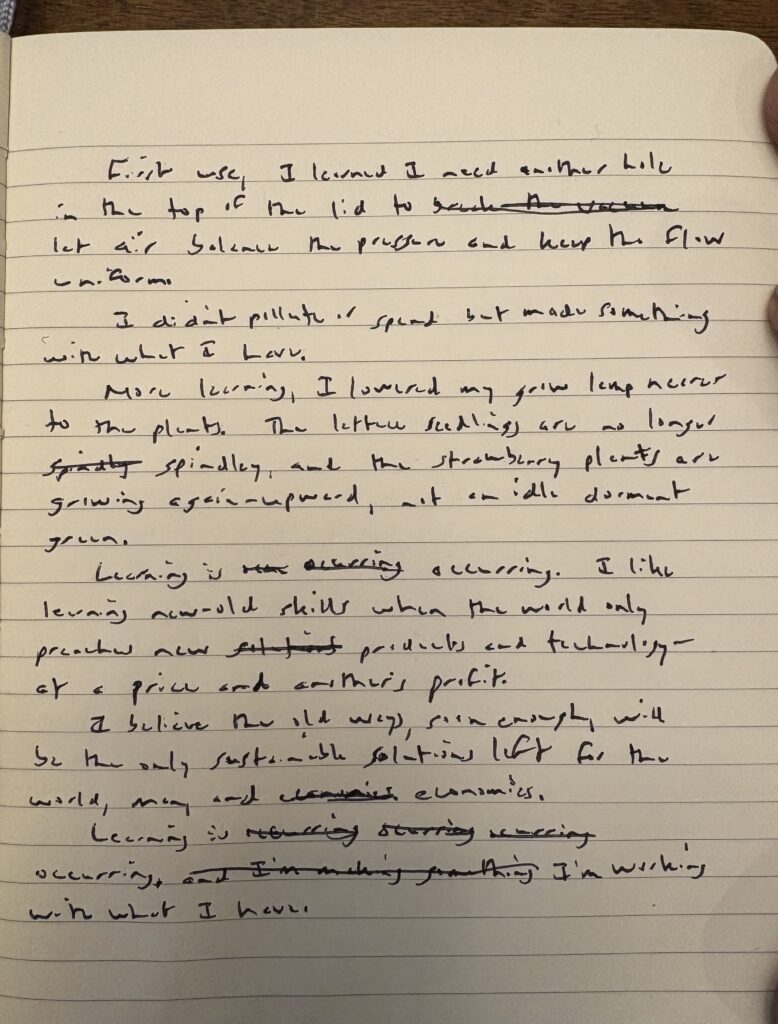 First use, I learned I need another hole
in the top of the lid to break the vacuum
let air balance the pressure and keep the flow
uniform.
I didn't pollute or spend but made something
with what I have.
More learning, I lowered my grow lamp nearer
to the plants. The lettuce seedlings are no longer
spindly spindley, and the strawberry plants are
growing again-upward, not an idle dormant
green.
Learning is occurring occurring. I like
learning new-old skills when the world only
preaches new solutions products and technology-
at a price and another's profit.
I believe the old ways, soon enough, will
be the only sustainable solutions left for the
world, man, and economics economics.
Learning is
occurring, and I'm making something I'm working
with what I have.